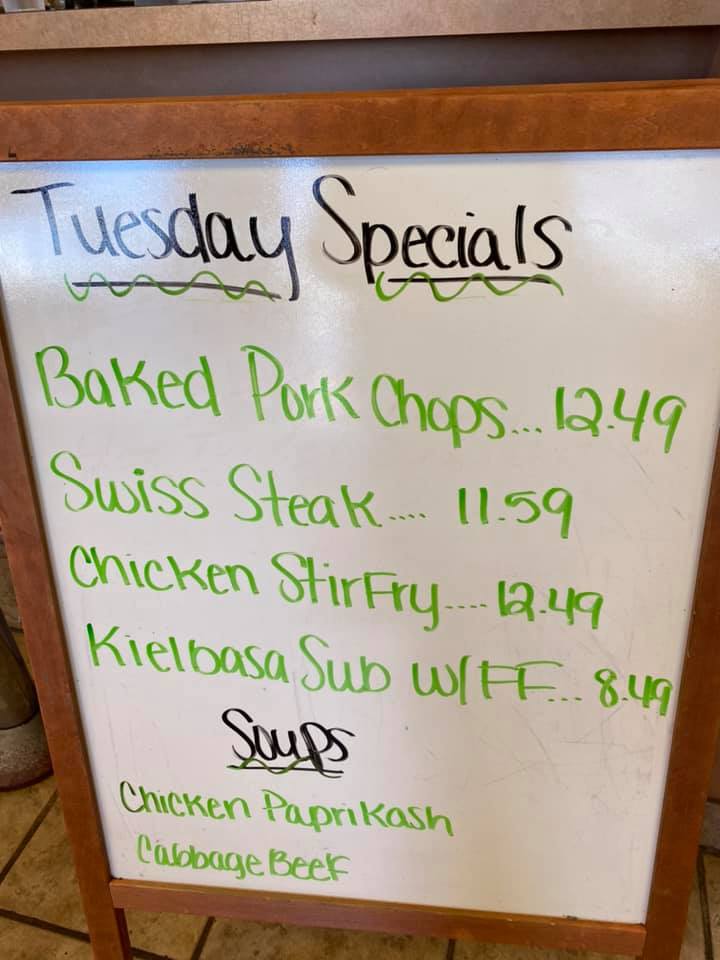 Tuesday Specials
Baked Pork Chops... 12.49
Swiss Steak.... 11.59
Chicken StirFry.... 12.49
Kielbasa Sub W/FF... 8.49
Soups
Chicken Paprikash
Cabbage Beef